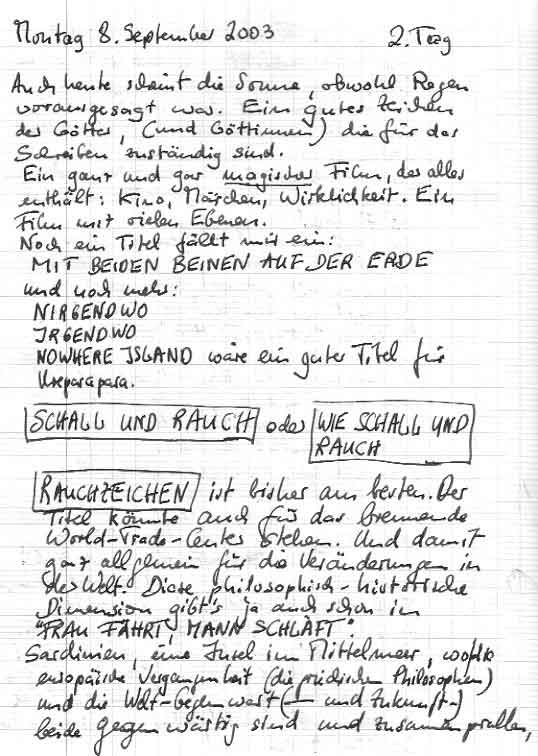 Montag 8. September 2003 2. Tag
Auch heute scheint die Sonne, obwohl Regen
vorausgesagt war. Ein gutes Zeichen
der Götter, (und Göttinnen) die für das
Schreiben zuständig sind.
Ein ganz und gar magischer Film, der alles
enthält: Kino, Märchen, Wirklichkeit. Ein
Film mit vielen Ebenen.
Noch ein Titel fällt mir ein:
MIT BEIDEN BEINEN AUF DER ERDE
und noch mehr:
NIRGENDWO
IRGENDWO
NOWHERE ISLAND wäre ein guter Titel für
Ureparapara.
SCHALL UND RAUCH oder WIE SCHALL UND
RAUCH
RAUCHZEICHEN ist bisher am besten. Der
Titel könnte auch für das brennende
World-Trade-Center stehen. Und damit
ganz allgemein für die Veränderungen in
der Welt. Diese philosophisch-historische
Dimension gibt's ja auch schon in
"FRAU FÄHRT, MANN SCHLÄFT".
Sardinien, eine Insel im Mittelmeer, wo die
europäische Vergangenheit (die griechischen Philosophen)
und die Welt-Gegenwart (– und Zukunft –)
beide gegenwärtig sind und zusammenprallen,